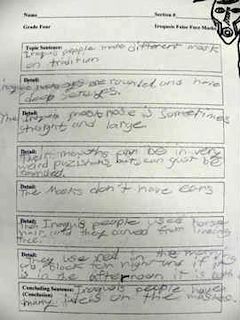 Name Section #
Grade Four Iroquois False Face Masks
Topic Sentence:
Iroquois people made different mask
on tradition
Detail:
Iroquois eyes are rounded and have
deep
Detail:
The Iroquois mask nose is sometimes
straight and large
Detail:
mouths can be in very
weird but can just be
Detail:
The Masks don't have ears
Detail:
The Iroquois people use horse
hair and they carved from
tree.
Detail:
They use red in the morning
black in night and if it
is in the afternoon it is both
Concluding Sentence: Iroquois people have
(Conclusion) many on the maskes.